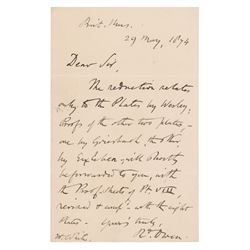 Brit. Mus.
29 May, 1874
Dear Sir,
The reduction relates
only to the Plates by Wesley;
Proofs of the other two plates,
one by Griesbach, the other
by Erxleben, will shortly
be forwarded to you, with
the Proof-sheets of Pt VIII
revised & with the eight
Plates. Yours truly,
Rd Owen.